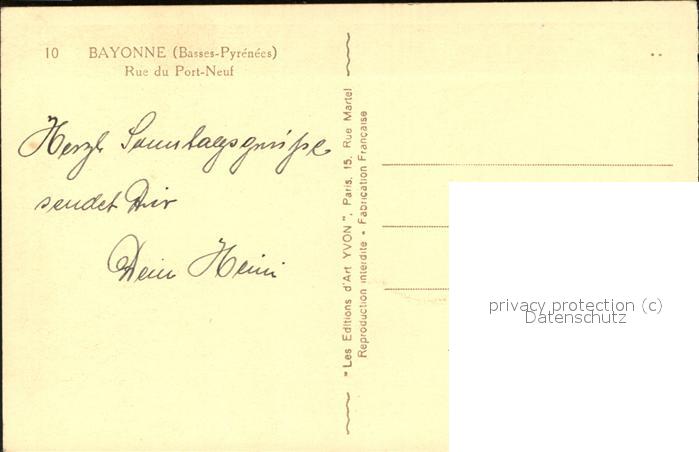 10 BAYONNE (Basses-Pyrénées)
Rue du Port-Neuf
Herzl. Sonntagsgrüße
sendet Dir
Dein Heini
"Les Editions d'Art YVON", Paris, 15, Rue Martel
Reproduction interdite • Fabrication Française
privacy protection (c)
Datenschutz